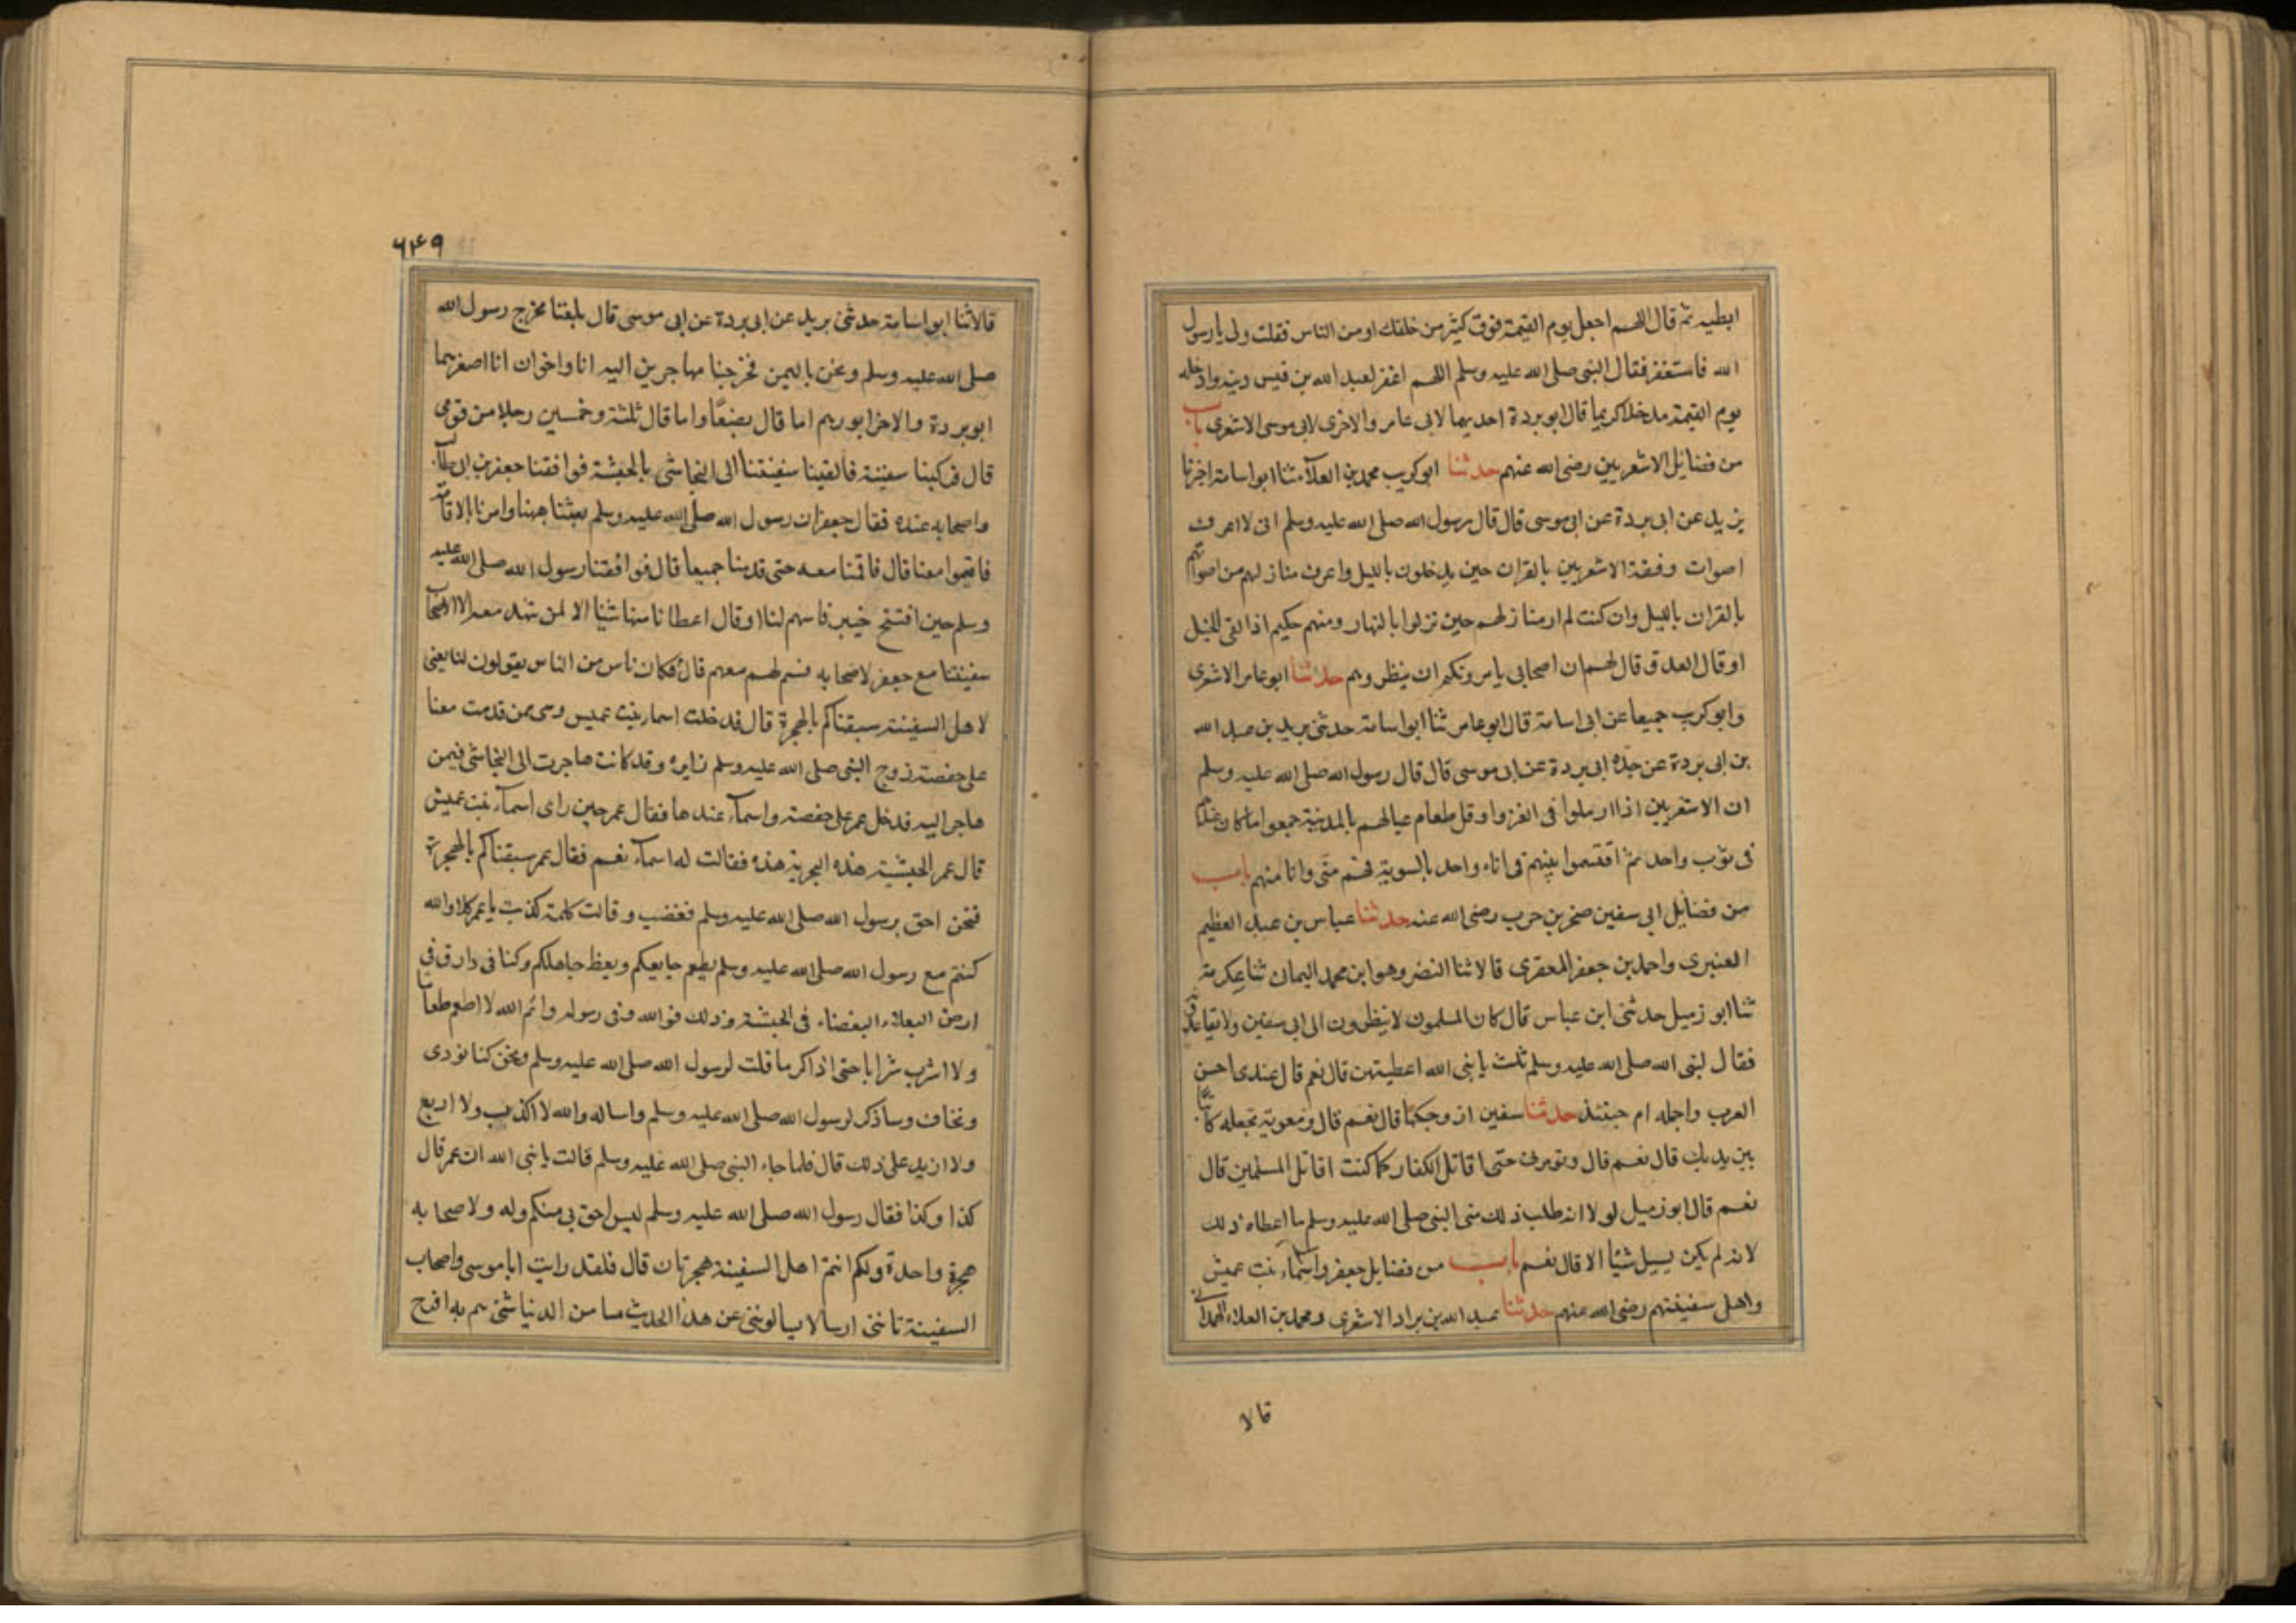 ابطيه ثم قال اللهم اجعل يوم القيمة فوق كثير من خلقك او من الناس فقلت ولى يا رسول
الله فاستغفر فقال النبى صلى الله عليه وسلم اللهم اغفر لعبد الله بن قيس ذنبه وادخله
يوم القيمة مدخلا كريما قال ابو بردة احديهما لابى عامر والاخرى لابى موسى الاشعرى باب
من فضايل الاشعريين رضى الله عنهم حدثنا ابو كريب محمد بن العلاء ثنا ابو اسامة اخبرنا
يزيد عن ابى بردة عن ابى موسى قال قال رسول الله صلى الله عليه وسلم انى لا اعرف
اصوات رفقة الاشعريين بالقران حين يدخلون بالليل واعرف منازلهم من اصواتهم
بالقران بالليل وان كنت لم ار منازلهم حين نزلوا بالنهار ومنهم حكيم اذا لقى الخيل
او قال العدو قال لهم ان اصحابى يامرونكم ان ينظروهم حدثنا ابو عامر الاشعرى
وابو كريب جميعا عن ابى اسامة قال ابو عامر ثنا ابو اسامة حدثنى بريد بن عبد الله
بن ابى بردة عن جده ابى بردة عن ابى موسى قال قال رسول الله صلى الله عليه وسلم
ان الاشعريين اذا ارملوا فى الغزو او قل طعام عيالهم بالمدينة جمعوا ما كان عندهم
فى ثوب واحد ثم اقتسموا بينهم فى اناء واحد بالسوية فهم منى وانا منهم باب
من فضايل ابى سفين صخر بن حرب رضى الله عنه حدثنا عباس بن عبد العظيم
العنبري واحمد بن جعفر المعقرى قالا ثنا النضر وهو ابن محمد اليمان ثنا عكرمة
ثنا ابو زميل حدثنى ابن عباس قال كان المسلمون لا ينظرون الى ابى سفين ولا يقاعدونه
فقال لنبى الله صلى الله عليه وسلم ثلث يا نبى الله اعطيتهن قال نعم قال عندى احسن
العرب واجمله ام حبيبة حدثنا سفين ازوجكها قال نعم قال ومعوية تجعله كاتبا
بين يديك قال نعم قال وتومرنى حتى اقاتل الكفار كما كنت اقاتل المسلمين قال
نعم قال ابو زميل لو لا انه طلب ذلك منى النبى صلى الله عليه وسلم ما اعطاه ذلك
لانه لم يكن يسيل شيئا الا قال نعم باب من فضايل جعفر واسماء بنت عميش
واهل سفينتهم رضى الله عنهم حدثنا عبد الله بن براد الاشعرى ومحمد بن العلاء الهمدانى
قالا
۶۴۹
قالا ثنا ابو اسامة حدثنى بريد عن ابى بردة عن ابى موسى قال بلغنا مخرج رسول الله
صلى الله عليه وسلم ونحن باليمن فخرجنا مهاجرين اليه انا واخوان انا اصغرهما
ابو بردة والاخر ابو رهم اما قال بضعا واما قال ثلثة وخمسين رجلا من قومى
قال فركبنا سفينة فالقينا سفينتنا الى النجاشى بالحبشة فوافقنا جعفر بن ابى طالب
واصحابه عنده فقال جعفر ان رسول الله صلى الله عليه وسلم بعثنا ههنا وامرنا بالاقامة
فاقيموا معنا قال فاقمنا معه حتى قدمنا جميعا قال فوافقنا رسول الله صلى الله عليه
وسلم حين افتتح خيبر فاسهم لنا او قال اعطانا منها شيئا الا لمن شهد معه الا اصحاب
سفينتنا مع جعفر لاصحابه قسم لهم معهم قال فكان ناس من الناس يقولون لنا يعنى
لاهل السفينة سبقناكم بالهجرة قال فدخلت اسما بنت عميس وهى ممن قدمت معنا
على حفصة زوج النبى صلى الله عليه وسلم زايره وقد كانت هاجرت الى النجاشى فيمن
هاجر اليه فدخل عمر على حفصة واسماء عندها فقال عمر حين راى اسماء بنت عميش
قال عمر الحبشية هذه البحرية هذه فقالت له اسماء نعم فقال عمر سبقناكم بالهجرة
فنحن احق برسول الله صلى الله عليه وسلم فغضب وقالت كلمة كذبت يا عمر كلا والله
كنتم مع رسول الله صلى الله عليه وسلم يطعم جايعكم ويعظ جاهلكم وكنا فى دار وفى
ارض البعداء البغضاء فى الحبشة وذلك فى الله وفى رسوله وايم الله لا اطعم طعاما
ولا اشرب شرابا حتى اذاكر ما قلت لرسول الله صلى الله عليه وسلم ونحن كنا نوذى
ونخاف وساذكر لرسول الله صلى الله عليه وسلم واساله والله لا اكذب ولا ازيع
ولا ازيد على ذلك قال فلما جاء النبى صلى الله عليه وسلم قالت يا نبى الله ان عمر قال
كذا وكذا فقال رسول الله صلى الله عليه وسلم ليس احق بى منكم وله ولاصحابه
هجرة واحدة ولكم انتم اهل السفينة هجرتان قال فلقد رايت ابا موسى واصحاب
السفينة تاتنى ارسالا يسالوننى عن هذا الحديث ما من الدنيا شئ هم به افرح